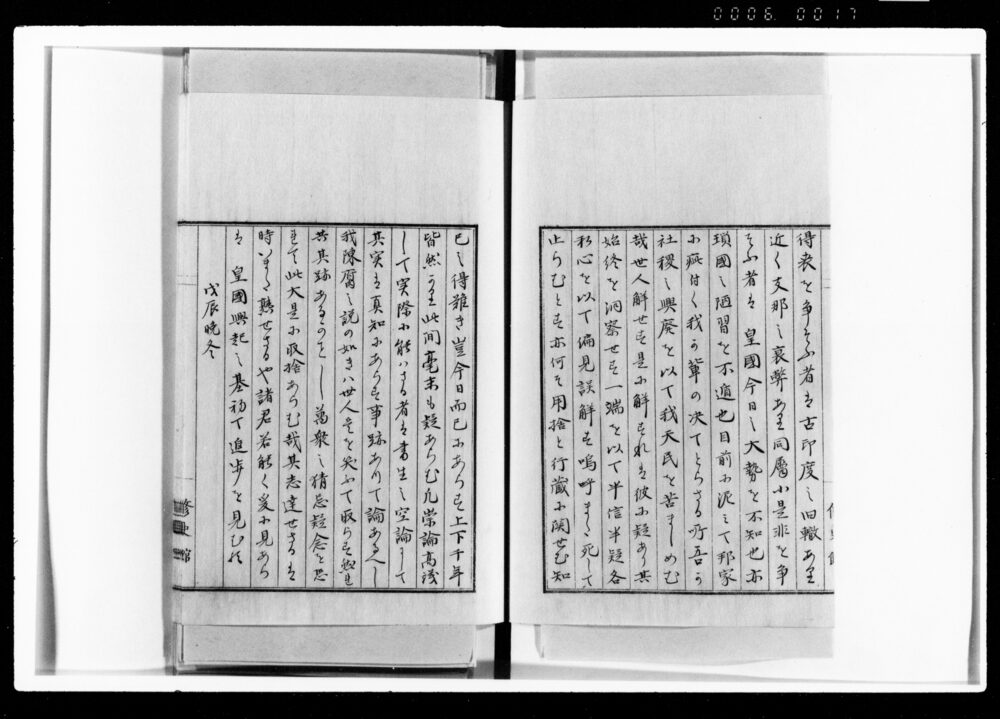 0006 0017
得喪を争ふ者は古印度之旧轍あり
近く支那之衰弊あり同層小是非を争
ふ者は 皇國今日之大勢を不知也亦
瑣國之陋習を不遁也目前に泥みて邦家
に疵付く我か輩の決てとらさる所吾か
社稷之興廃を以て我天民を苦ましめむ
哉世人解せす是に解すれは彼に疑あり其
始終を洞察せす一端を以て半信半疑各
私心を以て偏見誤解す嗚呼 死して
止らむとす亦何そ用捨と行蔵に関せむ知
已之得難き豈今日而已にあらす上下千年
皆然かり此間毫末も疑あらむ凡崇論高議
して実際に能はさる者は書生之空論にして
其実は真知にあらす事跡ありて論あるへし
我陳腐之説の如きハ世人 を笑ふて取らす
共其跡あるのみし萬衆之猜忌疑念を
て此大是に取捨あらむ哉其志達せさるは
時いまた熟せさるや諸君若能く爰に見あら
は 皇國興起之基初て進歩を見む
戊辰晩冬
修史館